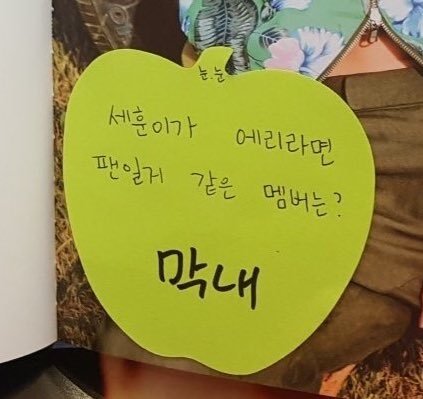 눈.눈
세훈이가 에리라면
팬일거 같은 멤버는?
막내